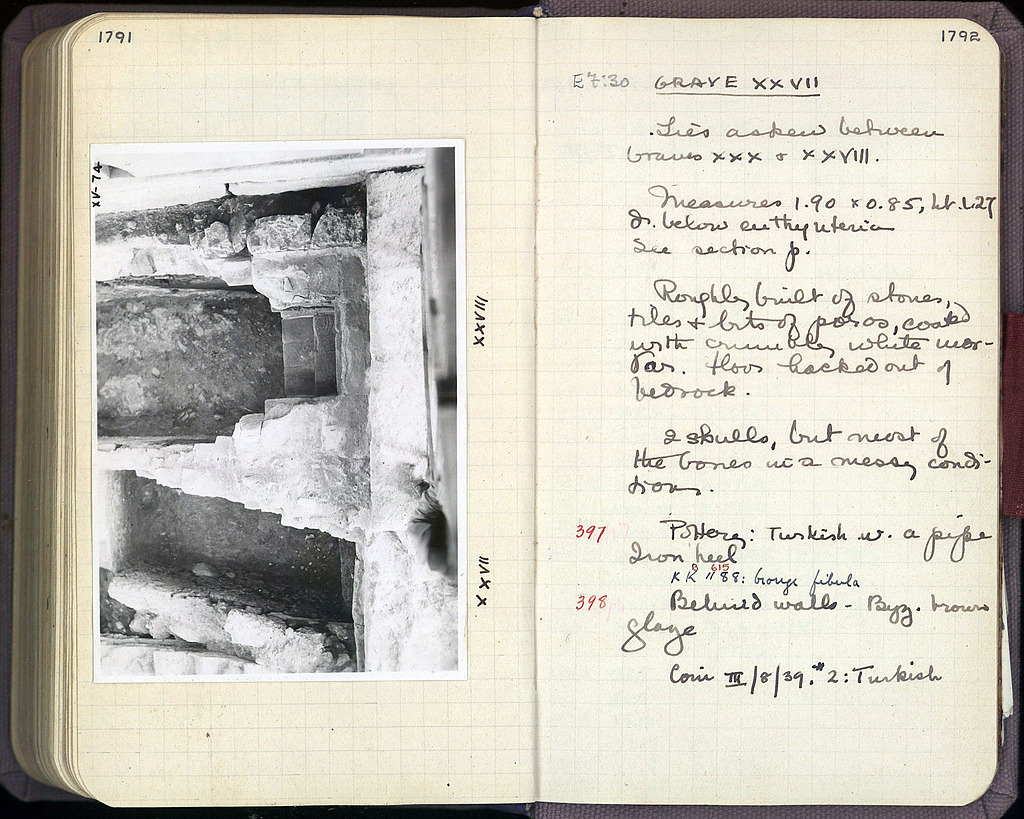 1791
XV-74
XXVIII
XXVII
1792
E 7:30 GRAVE XXVII
Lies askew between
Graves XXX & XXVIII.
Measures 1.90 x 0.85, ht. 1.27
d. below euthynteria
See section p.
Roughly built of stones,
tiles & bits of poros, coated
with crumbly white mor-
tar. Floor hacked out of
bedrock.
2 skulls, but most of
the bones in a messy condi-
tion.
397 Pottery: Turkish w. a pipe
Iron heel
B 615
KK 1188: bronze fibula
398 Behind walls - Byz. brown
glaze
Coin III/8/39. #2: Turkish